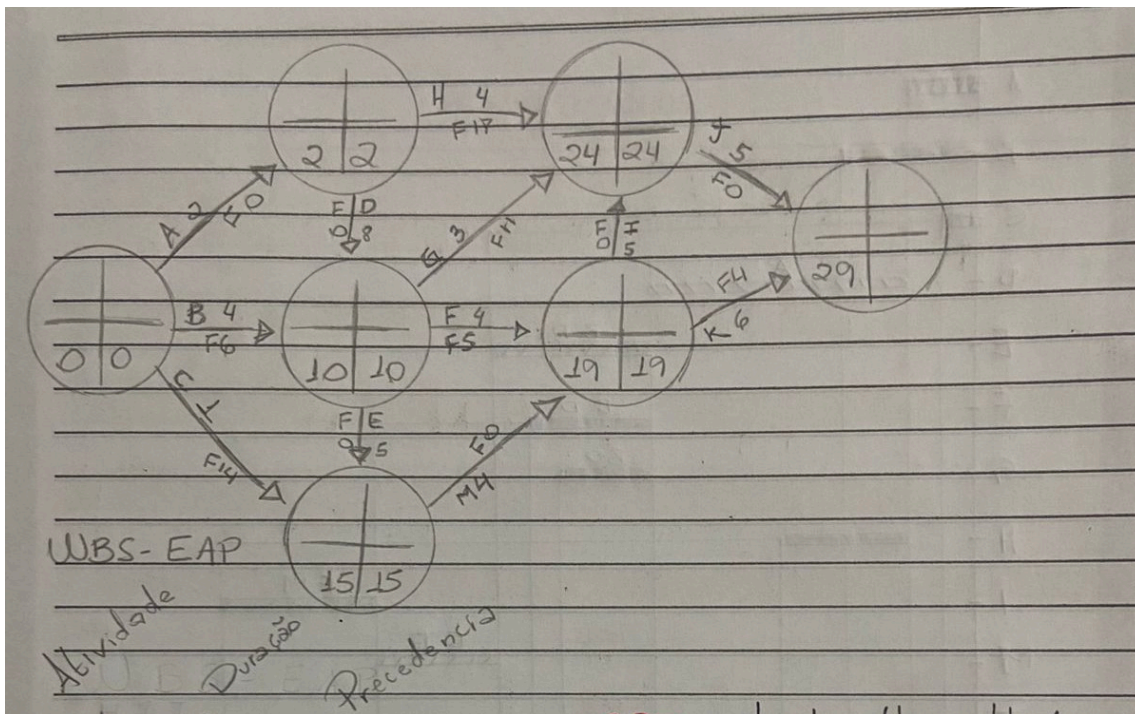 H 4
F18
2 2
24 24
J 5
F0
A 2
F 0
F D
0 8
G 3
F11
F I
0 5
29
B 4
F6
F 4
F5
F4
K 6
0 0
10 10
19 19
C 1
F14
F E
0 5
F0
M4
WBS-EAP
15 15
Atividade
Duração
Precedencia